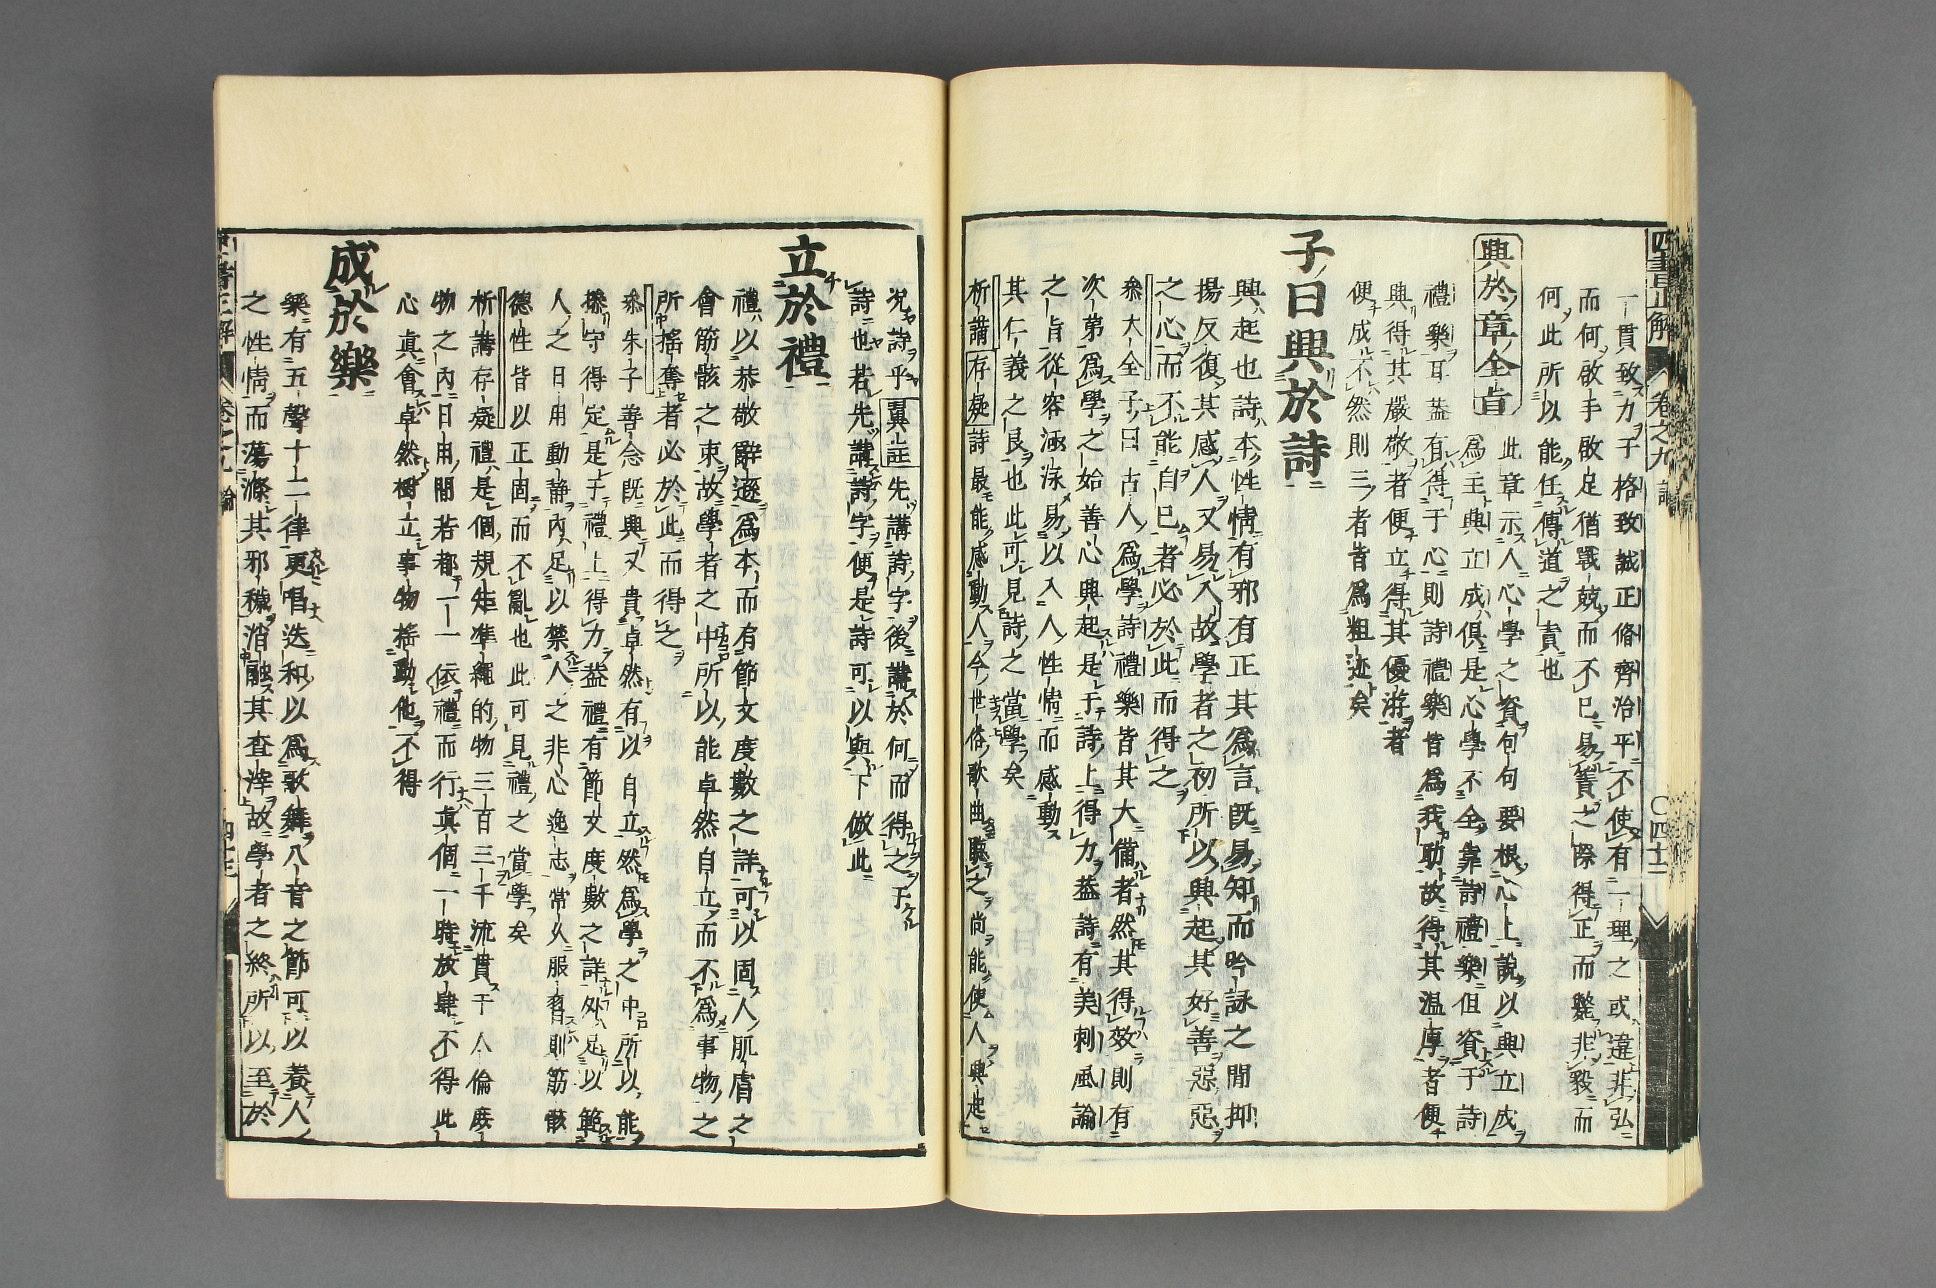 四書正解 卷之九 論 〇四十二
一貫致力于格致誠正脩齊治平不使有一理之或違非弘
而何啟手啟足猶戰兢而不已易簀之際得正而斃非毅而
何此所以能任傳道之責也
興於章全旨
此章示人心學之資句句要根心上說以興立成
爲主興立成俱是心學不全靠詩禮樂但資于詩
禮樂耳蓋有得于心則詩禮樂皆爲我助故得其温厚者便
興得其嚴敬者便立得其優游者
便成不然則三者皆爲粗迹矣
子曰興於詩
興起也詩本性情有邪有正其爲言既易知而吟詠之間抑
揚反復其感人又易入故學者之初所以興起其好善惡惡
之心而不能自已者必於此而得之
叅大全子曰古人爲學詩禮樂皆其大備者然其得效則有
次第爲學之始善心興起是于詩上得力葢詩有美刺風論
之旨從容涵泳易以入人性情而感動
其仁義之良也此可見詩之當學矣
析講存疑詩最能感動人今世俗歌曲聽之尚能使人興起
况詩乎翼註先講詩字後講於何而得之于
詩也若先講詩字便是詩可以興下倣此
立於禮
禮以恭敬辭遜爲本而有節文度數之詳可以固人肌膚之
會筋骸之束故學者之中所以能卓然自立而不爲事物之
所搖奪者必於此而得之
叅朱子善念既興又貴卓然有以自立然爲學之中所以能
操守得定是于禮上得力葢禮有節文度數之詳外足以範
人之日用動靜內足以禁人之非心逸志常久服習則筋骸
德性皆以正固而不亂也此可見禮之當學矣
析講存疑禮是個規矩準繩的物三百三千流貫于人倫庶
物之內日用間若都一一依禮而行真個一時放肆不得此
心真會卓然樹立事物搖動他不得
成於樂
樂有五聲十二律更唱迭和以爲歌舞八音之節可以養人
之性情而蕩滌其邪穢消融其查滓故學者之終所以至於